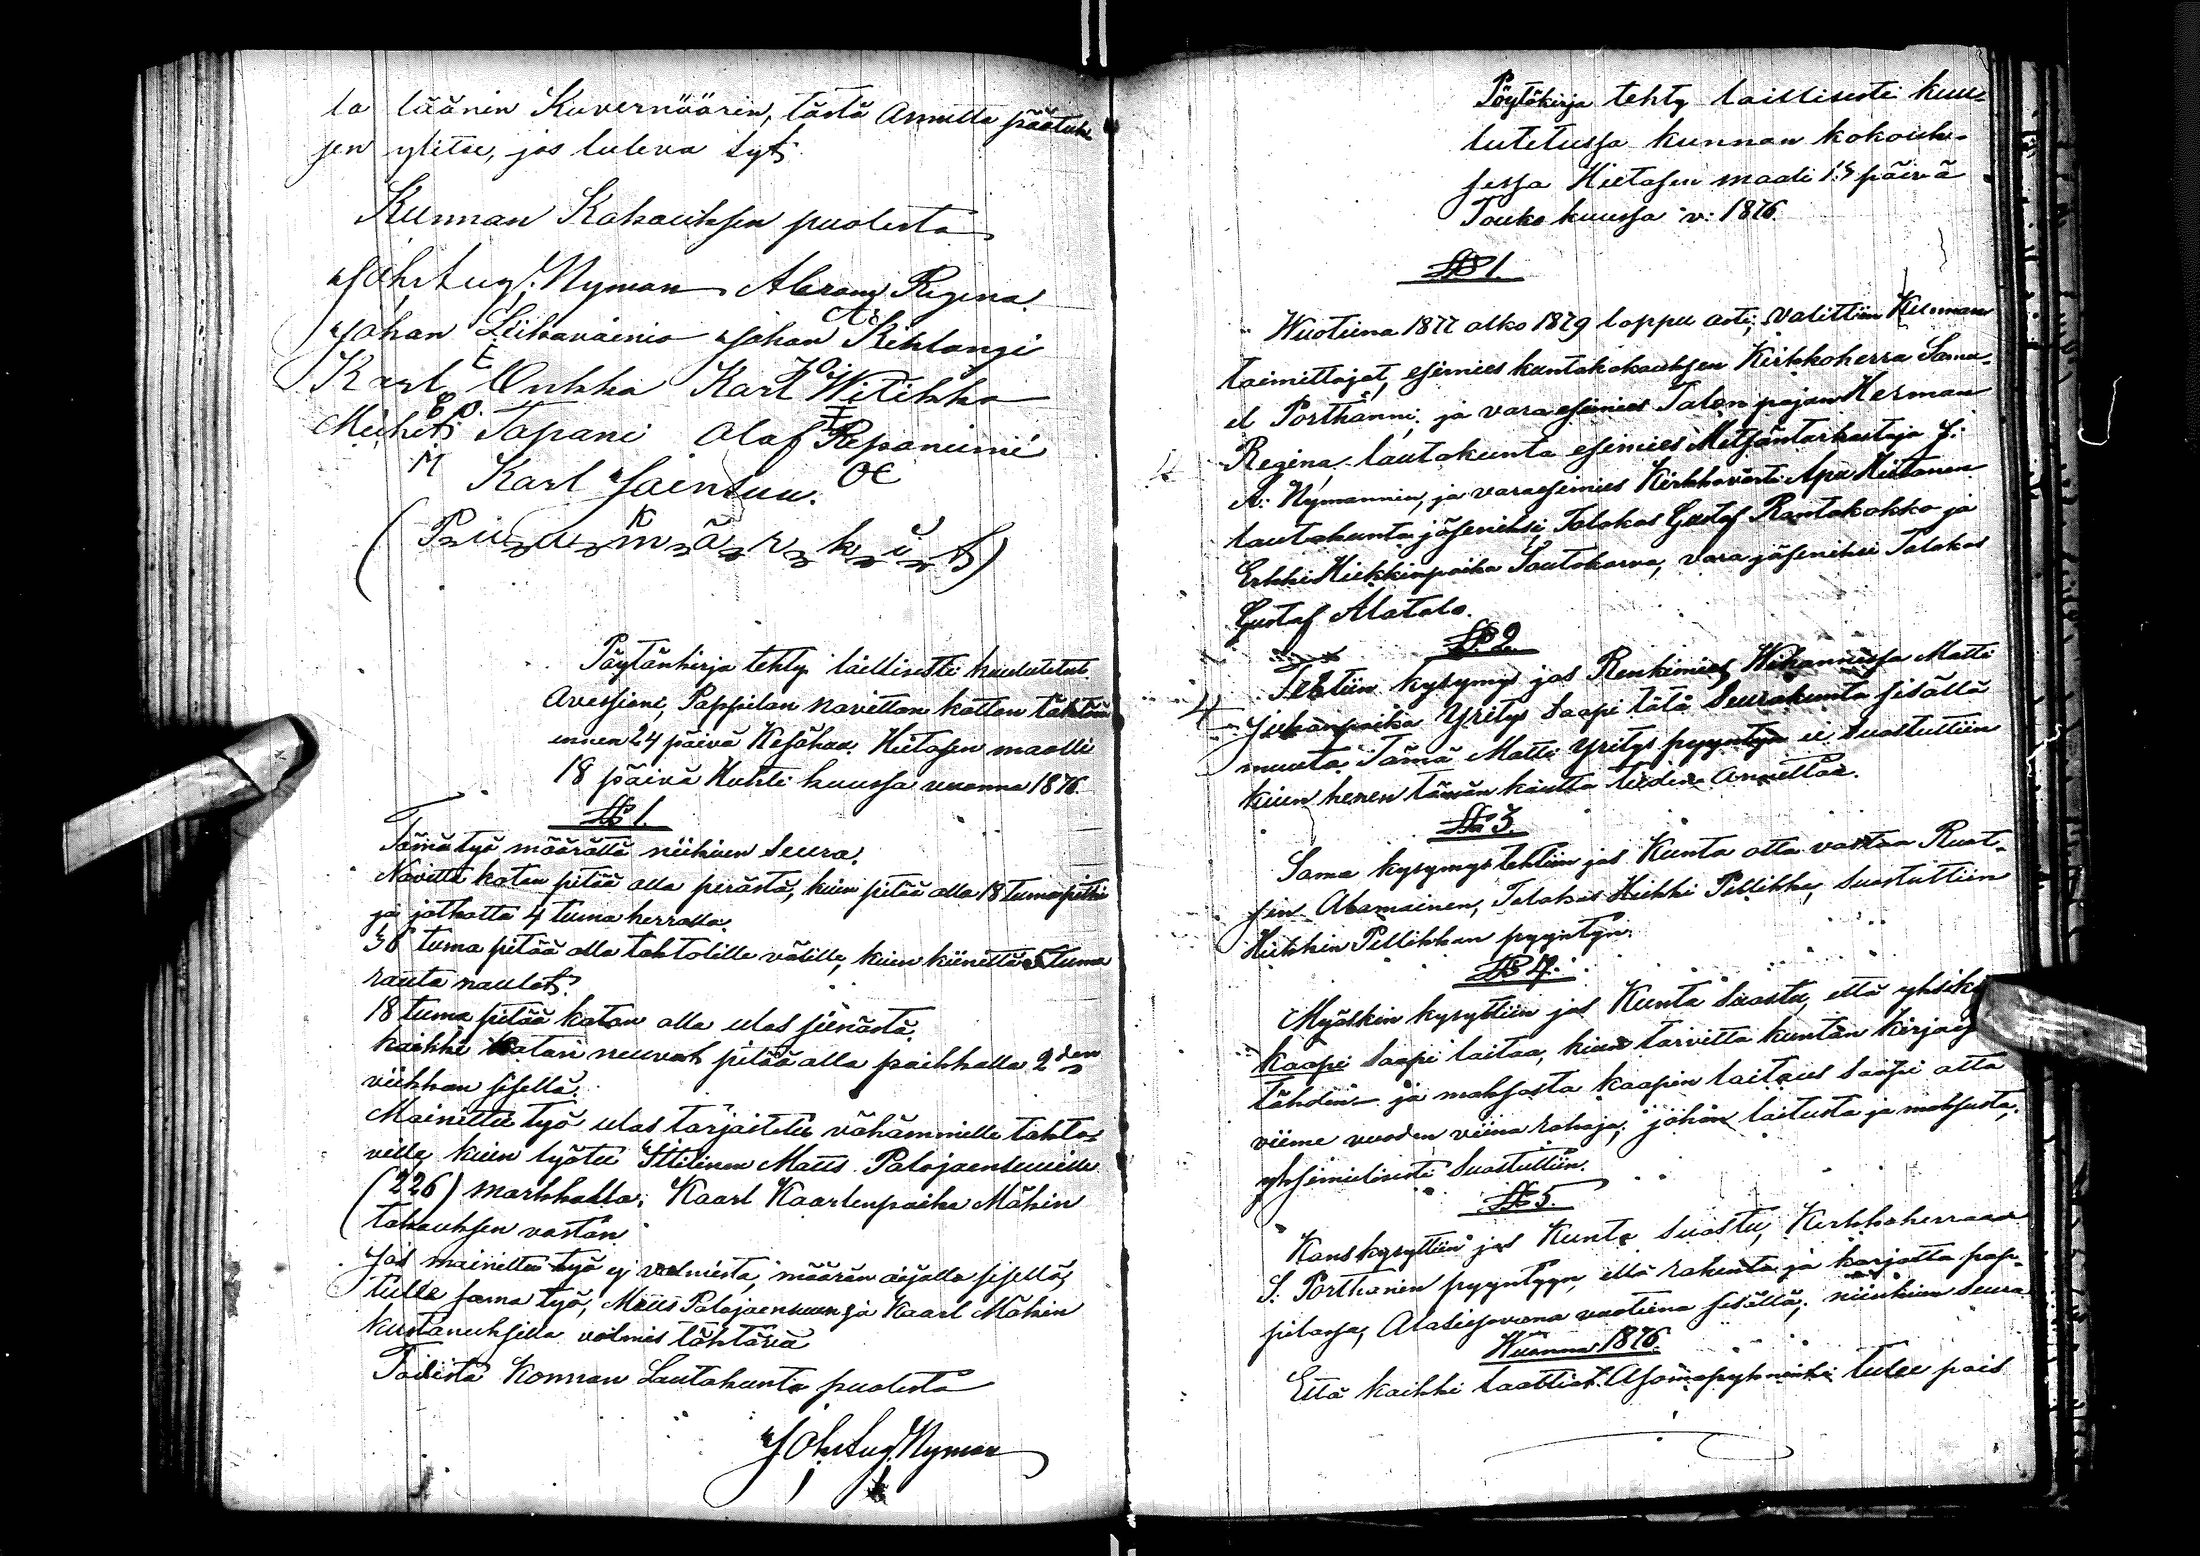 la läänin Kuvernöörin, tästä Annetta päätuk
sen ylitse, jos luleva syt.
Kunnan Kokouksen puolesta
Joh. Aug. Nyman Abram Regina
Johan Liikavainio Johan Kihlangi
Karl Unkka Karl Witikka
Michel Tapani Olaf Repaniemi
Karl Joensuu.
(Puumärkit)
Pöytänkirja tehty laillisesti kuulutetut
Avessioni, Pappilan navittan kattan tähtän
ennen 24 päivä Kesäkuu. Hietasen maalli
18 päivä Huhti kuussa vuonna 1876
§ 1.
Tämä työ määrättä niikuen seura.
Navitta katan pitää olla perästä, kuin pitää olla 18 tuma pitkä
ja jatkatta 4 tuma kerralla.
36 tuma pitää olla tahtolille välille, kuin kiinettä 5 tuma
rauta naulat.
18 tuma pitää katan olla ulos seinästä.
kaikki katan neuvat pitää olla paikkalla 2den
viikkon sisellä.
Mainittu työ ulos tarjaitetu vähämmille tahto-
ville kuin työtu Ittilinen Matts Palojaensuulle
(226) markkalla. Kaarl Kaarlenpoika Mäkin
takauksen vastan
Jos mainittu työ ej valmista, määrän aijalla sisellä,
tulle sama työ, Matts Palojaensuun ja Kaarl Mäkin
kustanuksilla valmis tähtävä
Todista Konnan Lautakunta puolesta
Joh. Aug. Nyman
Pöytäkirja tehty laillisesti kuu-
lutetussa kunnan kokouk-
sessa Hietasen maali 15 päivä
Touko kuussa v: 1876
§ 1.
Wuotuna 1877 alko 1879 loppu asti, valittiin Kunnan
toimittajat, esimies kuntakokouksen Kirkkoherra Samu-
el Porthanni, ja varaesimies Talon pojan Herman
Regina. lautakunta esimies Metsäntarkastaja J:
A: Nymannin, ja varaesimies Kirkkovärti Apu Hietanen
lautakunta jäseniksi, Talokas Gustaf Rantakokko ja
Erkki Heikkinpoika Soutokorva, vara jäseniksi Talokas
Gustaf Alatalo.
§ 2.
Tehtiin kysymys jos Renkimies Matti
Yritys saapi tätä Seurakunta sisällä
muuta. Tämä Matti Yritys pyyntyä ei suostuttiin
kuen henen tämän kautta tiedin Annettaa.
§ 3.
Sama kysymys tehtiin jos Kunta otta vastaa Ruot-
sin Alamainen, Talokas Heikki Pellikka, suostuttiin
Heikkin Pellikkan pyyntyn.
§ 4.
Myöskin kysyttiin jos Kunta suostu, että yksiko
kaapi saapi laitaa, kuin tarvitta kuntan kirjaij
tähdin- ja maksosta kaapin laitoies saapi otta
viime vuoden viina rahoja; johon laitusta ja maksusta,
yksimielisesti suostuttiin.
§ 5.
Kans kysyttiin jos Kunta suostu, Kirkkoherraan
S. Porthanin pyyntyyn, että rakenta ja korjatta pap-
pilassa, Alasieppovana vuotuna sisällä; niinkuen seura
Wuonna 1876.
Että kaikki laattiat tulee pois